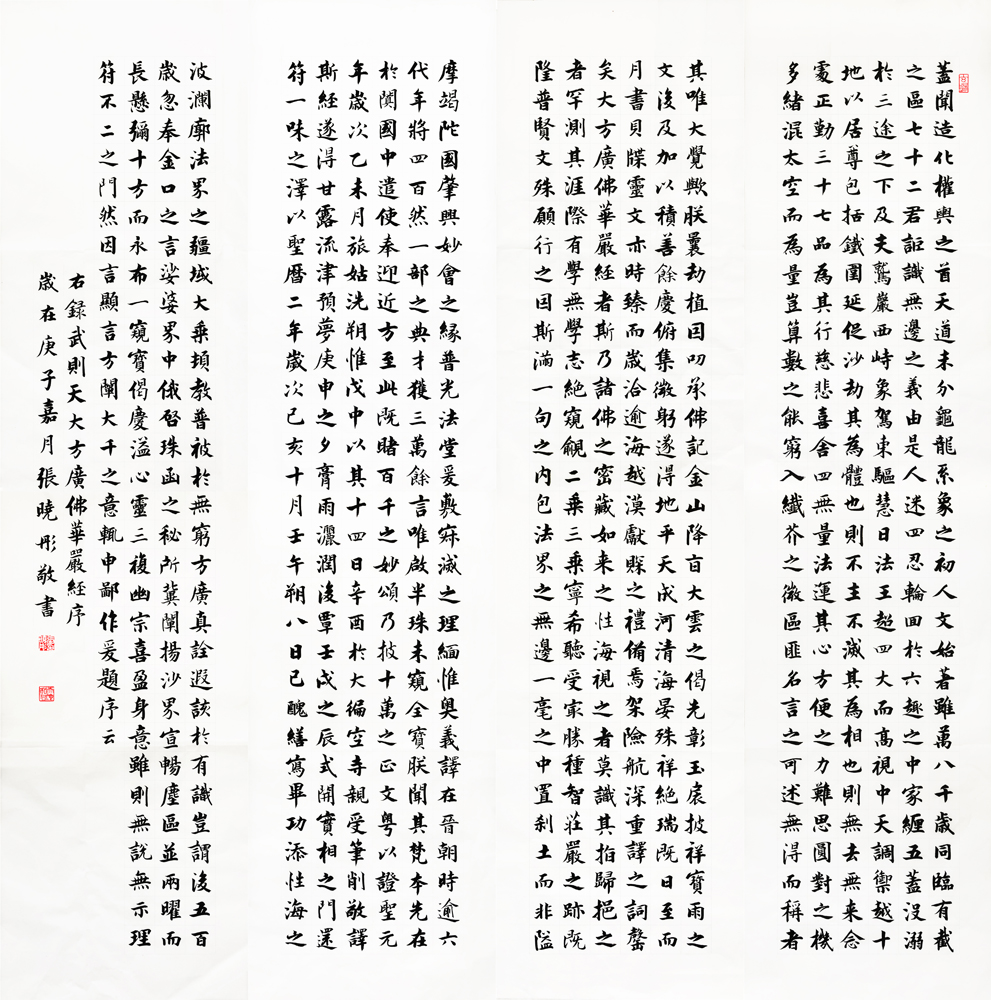 蓋聞造化權輿之首天道未分龜龍系象之初人文始著雖萬八千歲同臨有截
之區七十二君詎識無邊之義由是人迷四忍輪回於六趣之中家纏五蓋沒溺
於三途之下及夫鷲巖西峙象駕東驅慧日法王超四大而高視中天調禦越十
地以居尊包括鐵圍延促沙劫其為體也則不生不滅其為相也則無去無来念
處正勤三十七品為其行慈悲喜舍四無量法運其心方便之力難思圓對之機
多緒混太空而為量豈算數之能窮入纖芥之微區匪名言之可述無得而稱者
其唯大覺歟朕曩劫植因叨承佛記金山降旨大雲之偈先彰玉扆披祥寶雨之
文後及加以積善餘慶俯集微躬遂得地平天成河清海晏殊祥絕瑞既日至而
月書貝牒靈文亦時臻而歲洽逾海越漠獻賝之禮備焉架險航深重譯之詞罄
矣大方廣佛華嚴經者斯乃諸佛之密藏如来之性海視之者莫識其指歸挹之
者罕測其涯際有學無學志絕窺覦二乘三乘寧希聽受最勝種智莊嚴之跡既
隆普賢文殊願行之因斯滿一句之内包法界之無邊一毫之中置刹土而非隘
摩竭陀國肇興妙會之緣普光法堂爰敷寂滅之理緬惟奧義譯在晉朝時逾六
代年將四百然一部之典才獲三萬餘言唯啟半珠未窺全寶朕聞其梵本先在
於闐國中遣使奉迎近方至此既睹百千之妙頌乃披十萬之正文粵以證聖元
年歲次乙未月旅姑洗朔惟戊申以其十四日辛酉於大徧空寺親受筆削敬譯
斯經遂得甘露流津預夢庚申之夕膏雨灑潤後覃壬戌之辰式開實相之門還
符一味之澤以聖曆二年歲次己亥十月壬午朔八日己醜繕寫畢功添性海之
波瀾廓法界之疆域大乘頓教普被於無窮方廣真詮遐該於有識豈謂後五百
歲忽奉金口之言娑婆界中俄啓珠函之秘所冀闡揚沙界宣暢塵區並兩曜而
長懸彌十方而永布一窺寶偈慶溢心靈三複幽宗喜盈身意雖則無說無示理
符不二之門然因言顯言方闡大千之意輒申鄙作爰題序云
右錄武則天大方廣佛華嚴經序
歲在庚子嘉月張曉彤敬書